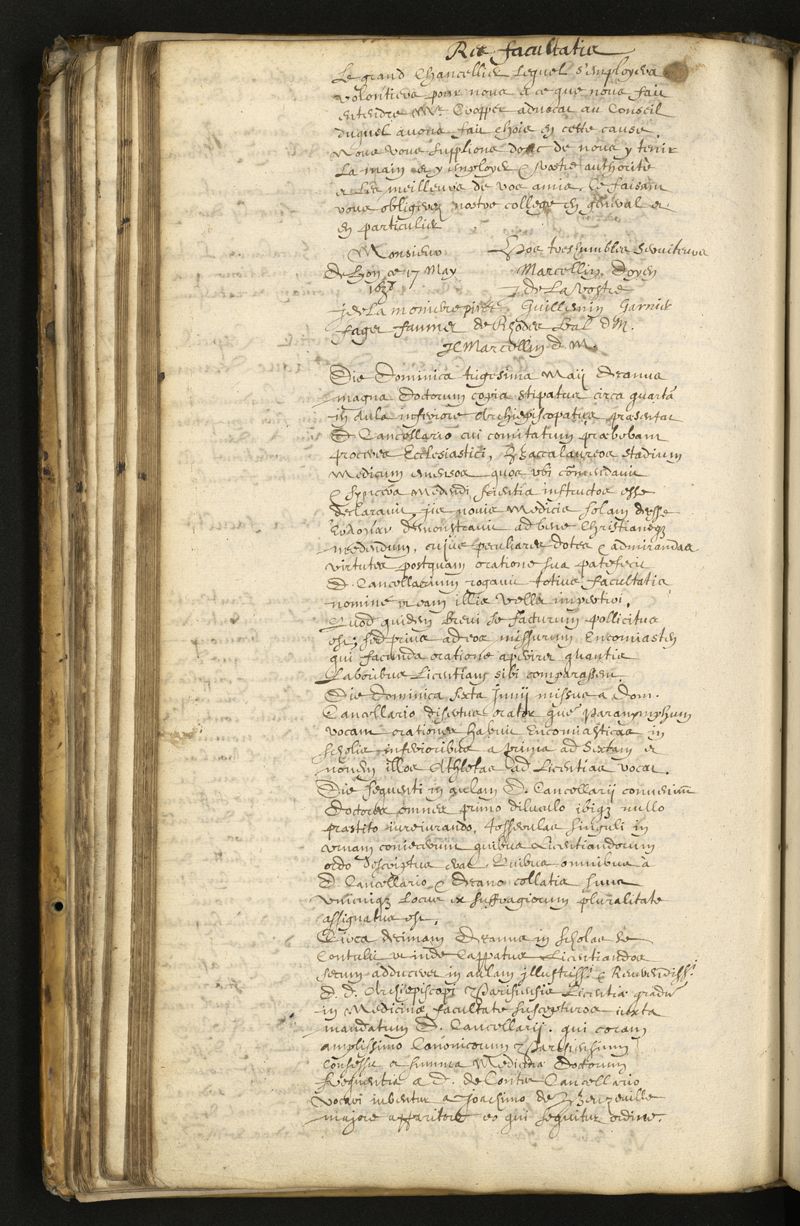 Res facultatis
Le grand Chancellier lequel s'employera
volontiers pour nous a ce que nous fait
entendre Mr Cropper advocat au Conseil
duquel avons fait choix en cette cause.
Nous vous supplions donc de nous y tenir
la main et y employer vostre authorité
et les meilleurs de vos amis. Ce faisant
vous obligerez nostre college en general et
en particulier
Monsieur Vos tres humbles serviteurs
de Lyon ce 17 May Marcellin, doyen
de La
de La moniere Guillemin Garnier
de Rhodes Bal D M.
Marcellin D. M.
Die Dominica trigesima Maij Decanus
magna doctorum copia stipatus circa quartã
in aula inferiore Archiepiscopatus præsentat
D. Cancellario cui comitatum præbebant
proceres Ecclesiastici, Baccalaureos stadium
Medicum emensos quos ubi cõmendavit
& syncera Medendi scientia instructos esse
declaravit, jis novis Medicis solam deesse
demonstravit ad bene Christianeqz
medendum, cujus peculiares dotes & admirandas
virtutes postquam oratione sua patefecit
D. Cancellarium rogavit totius facultatis
nomine ut eam illis vellet impertiri.
Quod quidem brevi se facturum pollicitus
est; sed prius ad eos missurum Encomiasten
qui facunda oratione aperiret quantis
Laboribus Licentiam sibi comparassent.
Die dominica sexta Junij missus a Dom.
Cancellario disertus orator quem Paranymphum
vocant orationes habuit Encomiasticas in
scholis inferioribus a prima ad sextam et
nomen illos Athletas ad Licentias vocat.
Die sequenti in aulam D. Cancellarij conveniũt
Doctores omnes primo diluculo ibiqz nullo
præstito iureiurando, tesserulas singuli in
urnam coniecerunt quibus Licentiandorum
ordo descriptus erat. Quibus omnibus a
D. Cancellario & Decano collatis suus
unicuiqz Locus ex suffragiorum pluralitate
assignatus est.
Circa decimam Decanus in scholas se
contulit ut inde Cappatus Licentiandos
secum adduceret in aulam jllustrissi & Reverendissi
D. D. Archiepiscopi Parisiensis Licentiæ gradũ
in Medicinæ facultate suscepturos iuxta
mandatum D. Cancellarij. qui coram
amplissimo Canonicorum Parisiensium
consessu et summa Medicinæ Doctorum
frequentia a D. de Contes Cancellario
vocari iubentur a Joachimo de Benzeville
majore apparitore eo qui sequitur ordine.